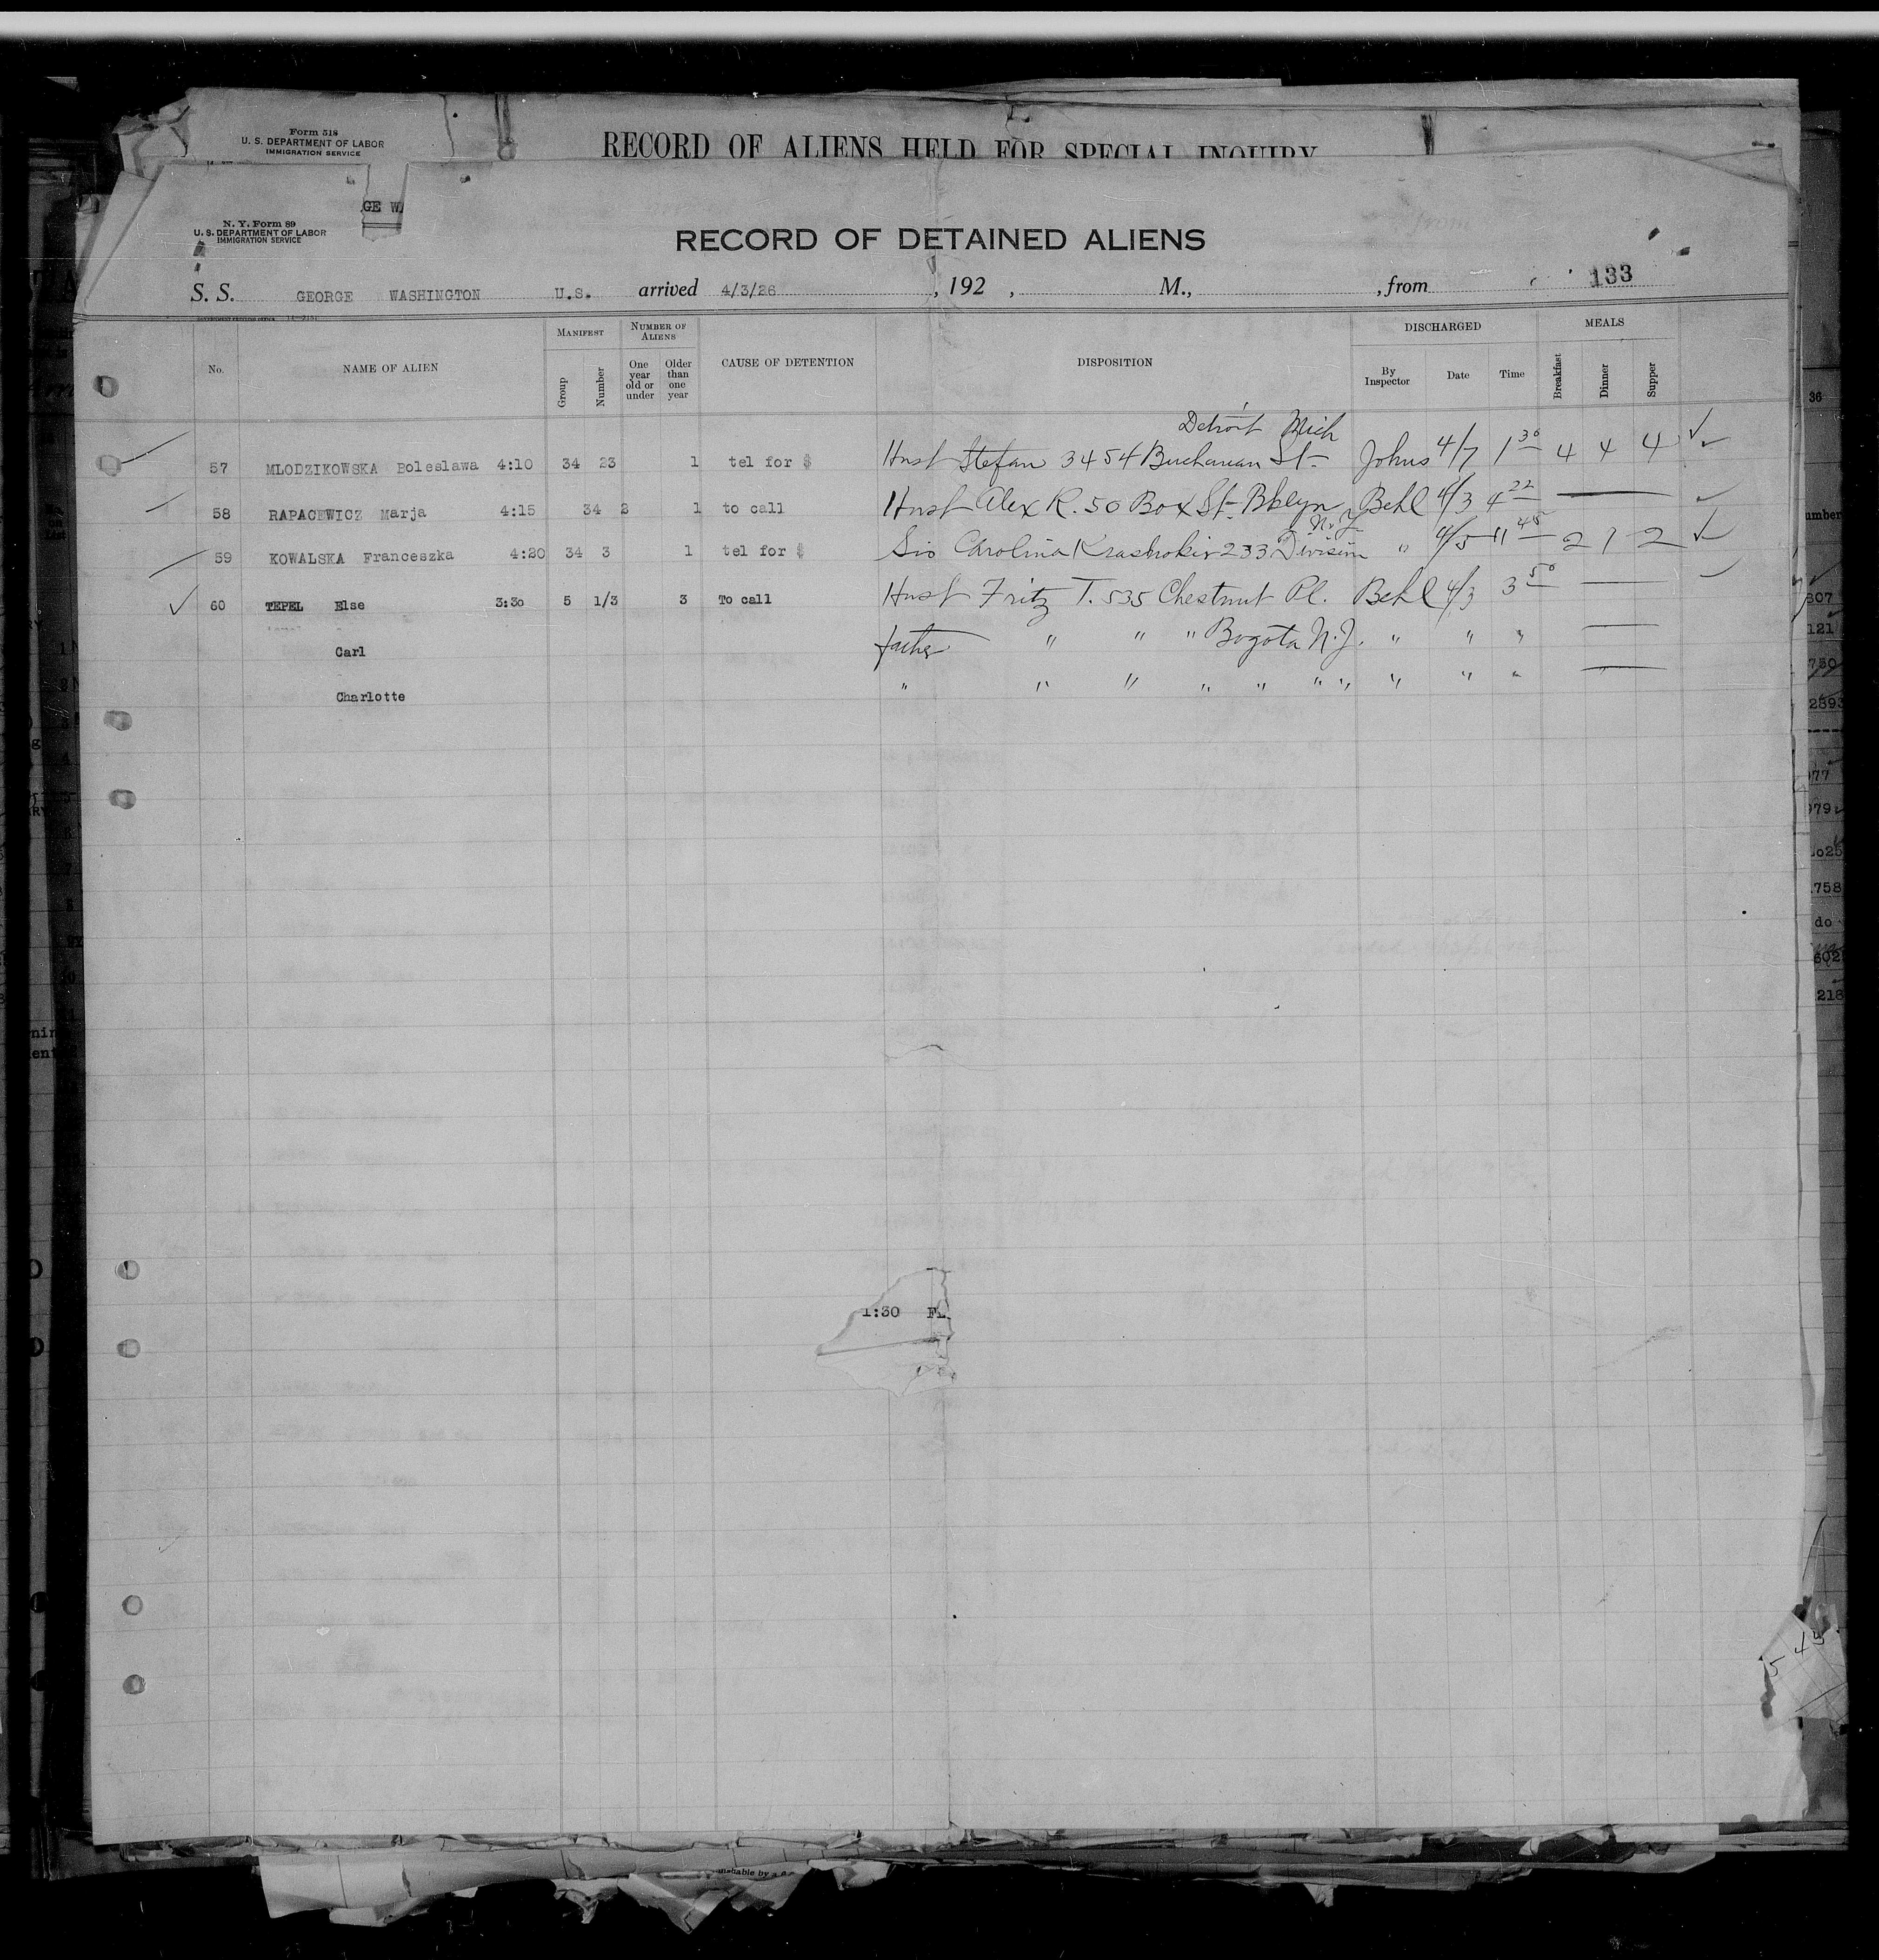 Form 518
U. S. DEPARTMENT OF LABOR
IMMIGRATION SERVICE
RECORD OF ALIENS HELD FOR SPECIAL INQUIRY
GE W
N. Y. Form 89
U. S. DEPARTMENT OF LABOR
IMMIGRATION SERVICE
RECORD OF DETAINED ALIENS
S. S. GEORGE WASHINGTON U.S. arrived 4/3/26, 192 , M., , from 133
No. NAME OF ALIEN MANIFEST Group Number NUMBER OF ALIENS One year old or under Older than one year CAUSE OF DETENTION DISPOSITION DISCHARGED By Inspector Date Time MEALS Breakfast Dinner Supper
Detroit Mich
57 MLODZIKOWSKA Boleslawa 4:10 34 23 1 tel for $ Husb Stefan 3454 Buchanan St- Johns 4/7 1 30 4 4 4
58 RAPACEWICZ Marja 4:15 34 2 1 to call Husb Alex R. 50 Box St- Bklyn Behl 4/3 4 22
N.Y.
59 KOWALSKA Franceszka 4:20 34 3 1 tel for $ Sis Carolina 233 Division " 4/5 11 45 2 1 2
60 TEPEL Else 3:30 5 1/3 3 To call Husb Fritz T. 535 Chestnut Pl. Behl 4/3 3 50
Carl father " " " Bogota N.J. " " "
Charlotte " " " " " " " " " "
1:30
36
umber
307
121
750
2393
977
979
.o25
.758
do
602
218
5 45